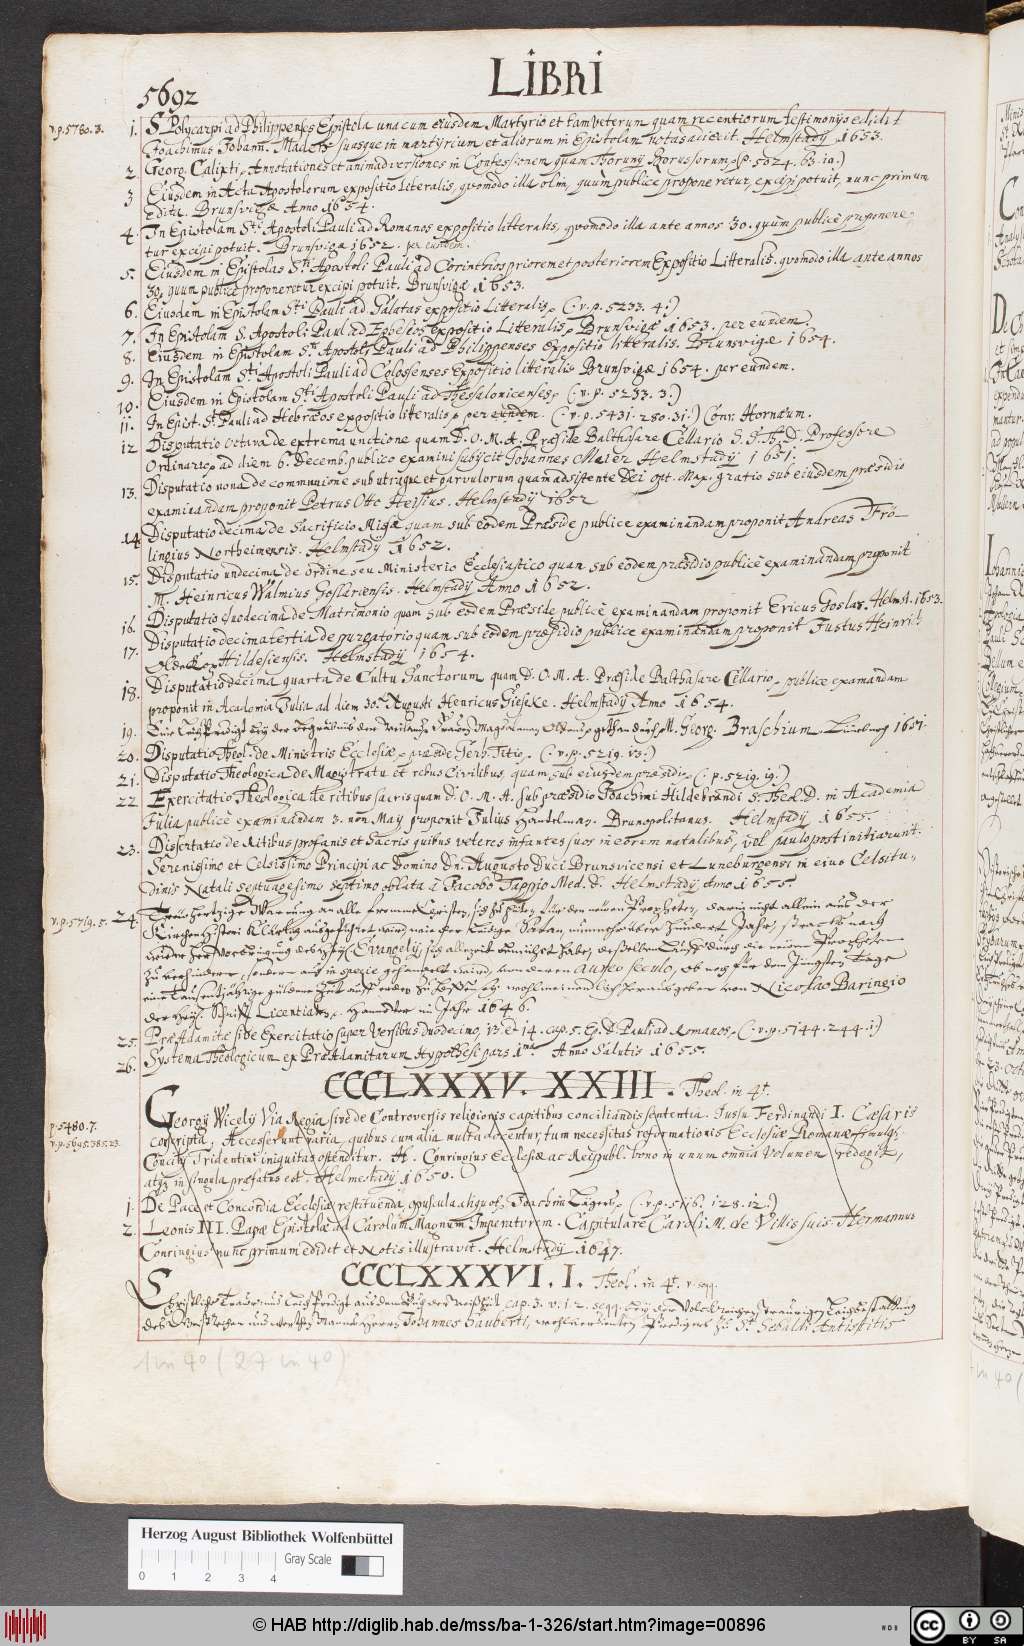 LIBRI
5692
v.p.5780.3.
1. S. Polycarpi ad Philippenses Epistola una cum eiusdem Martyrio et tam veterum quam recentiorum testimonijs edidit
Joachimus Johann. Maderus suasque in martyrium et aliorum in Epistolam notas adiecit. Helmstadij 1653.
2. Georg. Calixti, Annotationes et animadversiones in Confessionem quam Thoruny Borussorum, (p. 5624. 63. 19.)
3 Eiusdem in Acta Apostolorum expositio literalis, quomodo illa olim, quùm publicè proponeretur, excipi potuit, nunc primum
edita. Brunsvigæ Anno 1654.
4. In Epistolam Sti. Apostoli Pauli ad Romanos expositio litteralis, quomodo illa ante annos 30. quum publicè propone-
tur excipi potuit. Brunsvigæ 1652. per eundem.
5. Eiusdem in Epistolas Sti Apostoli Pauli ad Corinthios priorem et posteriorem Expositio Litteralis. quomodo illa ante annos
30. quum publicè proponeretur excipi potuit. Brunsvigæ 1653.
6. Eiusdem in Epistolam Sti Pauli ad Galatas expositio Litteralis, (: v. p. 5233. 4:)
7. In Epistolam S. Apostoli Pauli ad Ephesios expositio Litteralis, Brunsvigæ 1653. per eundem.
8. Eiusdem in Epistolam Sti Apostoli Pauli ad Philippenses Expositio litteralis. Brunsvigæ 1654.
9. In Epistolam Sti Apostoli Pauli ad Colossenses Expositio litteralis Brunsvigæ 1654. per eundem.
10. Eiusdem in Epistolam Sti Apostoli Pauli ad Thessalonicenses, (: v. p. 5233. 3.)
11. In Epist. Sti Pauli ad Hebræos expositio literalis, per eundem. (: v. p. 5431. 280. 31.) Conr. Horneum.
12 Disputatio octava de extrema unctione quam D. O. M. A. Præside Balthasare Cellario S. S. Th. D. Professore
Ordinario, ad diem 6. Decemb. publico examini subijcit Johannes Maier Helmstadij 1651.
13. Disputatio nona de communione sub utraque et parvulorum quam adsistente Dei opt. Max. gratio sub eiusdem præsidio
examinandam proponit Petrus Otto Heisius. Helmstadij 1652
14 Disputatio decima de Sacrificio Missæ quam sub eodem Præside publice examinandam proponit Andreas Frö-
lingius Northeimensis. Helmstadij 1652.
15. Disputatio undecima de ordine seu Ministerio Ecclesiastico quam sub eodem præsidio publicè examinandam proponit
M. Heinricus Walmius Goslariensis. Helmstadij Anno 1652.
16. Disputatio duodecima de Matrimonio quam sub eodem Præside publicè examinandam proponit Ericus Goslar. Helmst. 1653.
17. Disputatio decima tertia de purgatorio quam sub eodem præsidio publice examinandam proponit Justus Heinrich
Oldekop Hildesiensis. Helmstadij 1654.
18. Disputatio decima quarta de Cultu Sanctorum quam D. O. M. A. Præside Balthasare Cellario, publice examandam
proponit in Academia Julia ad diem 30. Augusti Henricus Gieseke. Helmstadij Anno 1654.
19. Eine Leichpredigt bey der Begräbnis der Weiland Frawen Magdalenen gethan durch M. Georg. Braschium. Lüneburg 1651.
20. Disputatio Theol. de Ministris Ecclesiæ, præside Gerh. Titio, (: v. p. 5219. 13.)
21. Disputatio Theologica de Magistratu et rebus civilibus, quam sub eiusdem præsidio, (: p. 5219. 19.)
22 Exercitatio Theologica de ritibus sacris quam D. O. M. A. sub præsidio Joachimi Hildebrandi S. Theol. D. in Academia
Julia publicè examinandam 3. non May proponit Julius Handelman. Brunopolitanus. Helmstadij 1655.
23. Dissertatio de Ritibus profanis et Sacris quibus veteres infantes suos in eorem natalibus, vel paulo post initiarunt.
Serenissimo et Celsissimo Principi ac Domino Dn. Augusto Duci Brunsvicensi et Luneburgensi in eius Celsitu-
dinis Natali septuagesimo septimo oblata à Jacobo Tappio Med. D. Helmstadij Anno 1655.
v.p.5719.5. 24. Trewhertzige Warnung an alle fromme Christen, sich zu hüten für den newen Propheten, darin nicht allein aus der
Kirchen Historien klärlich außgeführet wird, wie der leidige Satan, nunmehr über hundert Jahr, stracks nach
wieder herfürbringung des heyl. Evangelij, sich allezeit bemühet habe, desselben lauff durch die newen Propheten
zu verhindern, sondern auch in specie gehandelt wird, von deren aureo seculo, ob noch für dem Jüngsten Tage
eine Tausendjährige güldene Zeit auff erden zu hoffen sey wohlmeinend herausgeben von Nicolao Baringio
der heyl. Schrifft Licentiaten, Hannover im Jahr 1646.
25. Præadamitæ sive Exercitatio super Versibus duodecimo, 13. et 14. cap. 5. Ep. D. Pauli ad Romanos, (: v. p. 5744. 244. 1:)
26. Systema Theologicum ex Præadamitarum Hypothesi pars 1ma. Anno Salutis 1655.
CCCLXXXV. XXIII. Theol. in 4t.
p. 5480. 7. Georgij Wicelij Via Regia sive de Controversis religionis capitibus conciliandis sententia. Jussu Ferdinandi I. Cæsaris
v.p.5695.385.23. conscripta, Accesserunt varia, quibus cum alia multa docentur, tum necessitas reformationis Ecclesiæ Romanæ et simulq;
Concilij Tridentini iniquitas ostenditur. H. Conringius Ecclesiæ ac Reipubl. bono in unum omnia volumen redegit,
atq; in singula præfatus est. Helmestadij 1650.
1. De Pace et Concordia Ecclesiæ restituenda, opuscula aliquot, Joachim Lagers, (: v. p. 5116. 128. 12.)
2. Leonis III. Papæ Epistolæ ad Carolum Magnum Imperatorem. Capitulare Caroli M. de Villis suis. Hermannus
Conringius nunc primum edidit et Notis illustravit. Helmstadij 1647.
CCCLXXXVI. I. Theol. in 4t. v. seqq.
Christliche Trawer und Leichpredigt aus dem Buch der Weißheit cap. 3. v. 1. 2. seqq. bey der Volckreichen traurigen Leichbestattung
des Ehrwürdigen und Mannes Herrn Johannes Sauberti, wohlverdienten Predigers zu St. Sebaldi Antistitis
1 in 4° (27 in 4°)
Herzog August Bibliothek Wolfenbüttel
0 1 2 3 4 Gray Scale
© HAB http://diglib.hab.de/mss/ba-1-326/start.htm?image=00896
cc BY SA